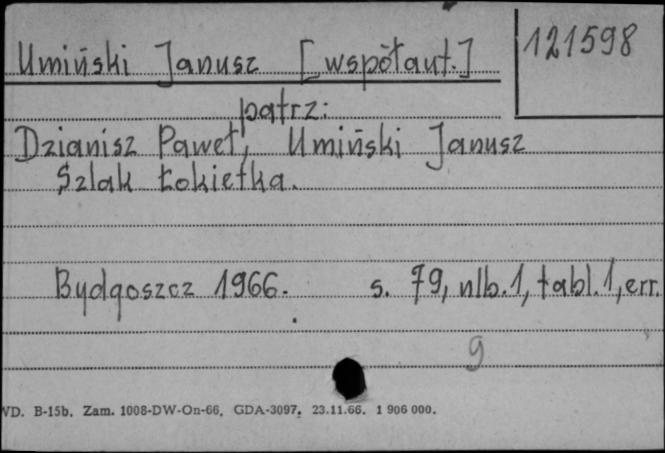 Umiński Janusz [współaut.] 121598
patrz:
Dzianisz Paweł, Umiński Janusz
Szlak Łokietka.
Bydgoszcz 1966. s. 79, nlb.1, tabl.1, err.
9
WD. B-15b. Zam. 1008-DW-On-66, GDA-3097, 23.11.66. 1 906 000.